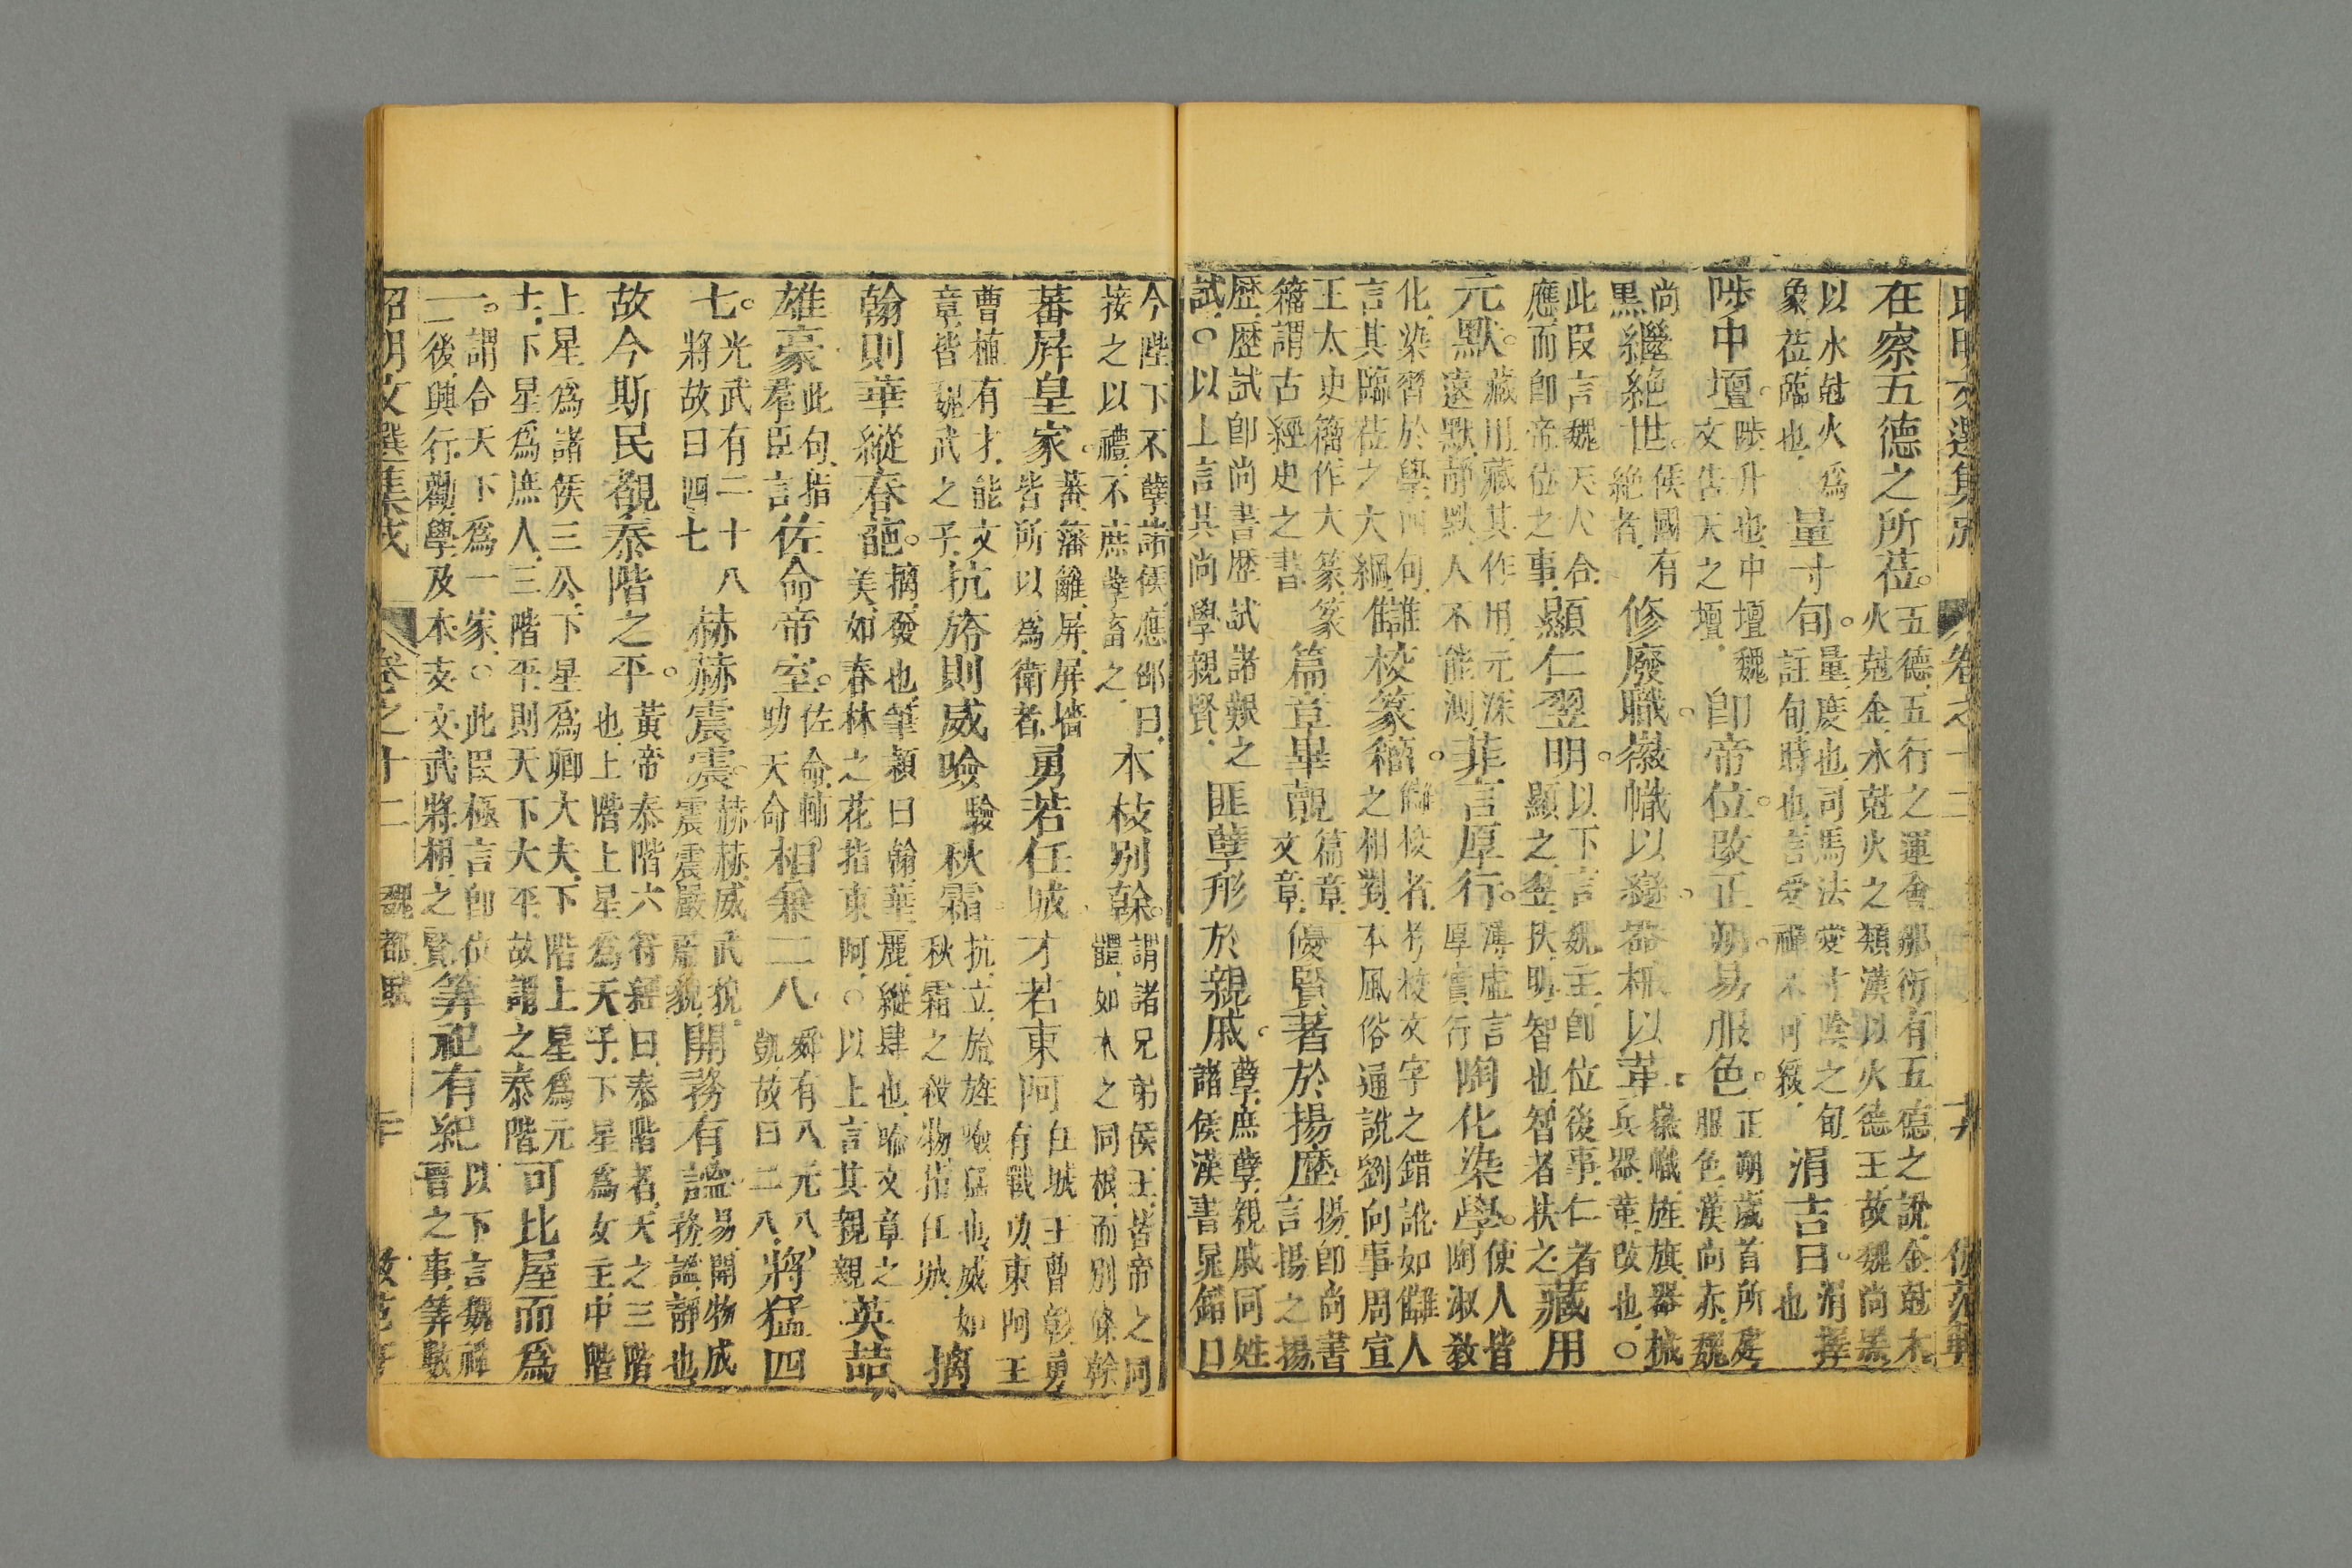 在察五德之所莅。五德五行之運會鄒衍有五德之說金尅木火尅金水尅火之類漢以火德王故魏尚黑
以水尅火爲象莅臨也量寸旬。量度也司馬法變寸陰之旬註旬時也言愛禪不可緩涓吉日。涓擇也
陟中壇。陟升也中壇魏文告天之壇卽帝位。改正朔。易服色。正朔歲首所建服色漢尚赤魏
尚黑繼絶世。侯國有絶者修廢職。徽幟以變。器械以革。徽幟旌旗器械兵器革改也。
此段言魏天人合應而卽帝位之事顯仁翌明。以下言魏主卽位後事仁者顯之翌扶明智也智者扶之藏用
元默。藏用藏其作用元深遠默靜默人不能測菲言厚行。薄虛言厚實行陶化染學。使人皆陶淑敎
化染習於學四句言其臨莅之大綱讎校篆籕。讎校者考校文字之錯訛如讎人之相對本風俗通說劉向事周宣
王太史籕作大篆篆籕謂古經史之書篇章畢覿篇章文章優賢著於揚歷揚卽尚書言揚之揚
歷歷試卽尚書歷試諸艱之試。以上言其尚學親賢匪孽形於親戚。孽庶孽親戚同姓諸侯漢書晁錯曰
今陛下不孽諸侯應邵曰接之以禮不庶孽畜之本枝别榦。謂諸兄弟侯王皆帝之同體如木之同根而别條榦
蕃屛皇家。蕃藩籬屛屛墻皆所以爲衛者勇若任城才若東阿任城王曹彰勇有戰功東阿王
曹植有才能文章皆魏武之子抗旍則威噞驗秋霜。抗立旍旌噞猛也威如秋霜之殺物指任城摛
翰則華縱春葩。摛發也筆穎曰翰華麗縱肆也喻文章之美如春林之花指東阿。以上言其親親英喆
雄豪此句指羣臣言佐命帝室。佐命輔助天命相兼二八舜有八元八凱故曰二八將猛四
七。光武有二十八將故曰四七赫赫震震赫赫威武貌震震嚴肅貌開務有謐易開物成務謐靜也
故今斯民覩泰階之平。黃帝泰階六符經曰泰階者天之三階也上階上星爲天子下星爲女主中階
上星爲諸侯三公下星爲卿大夫下階上星爲元士下星爲庶人三階平則天下大平故謂之泰階可比屋而爲
一。謂合天下爲一家。此段極言卽位二後興行勸學及本支文武將相之賢筭祀有紀以下言魏禪晉之事筭數
昭明文選集成 卷之十二 魏都賦